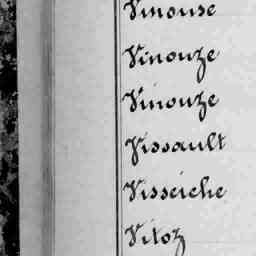 Vinouse
Vinouze
Vinouze
Vissault
Visseiche
Vitoz